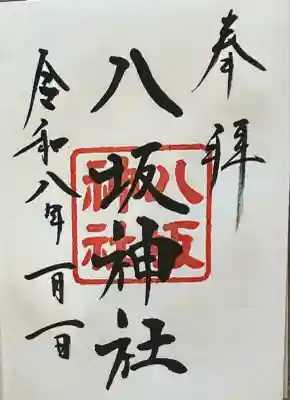 奉拝
八坂神社
八坂神社
令和八年一月一日